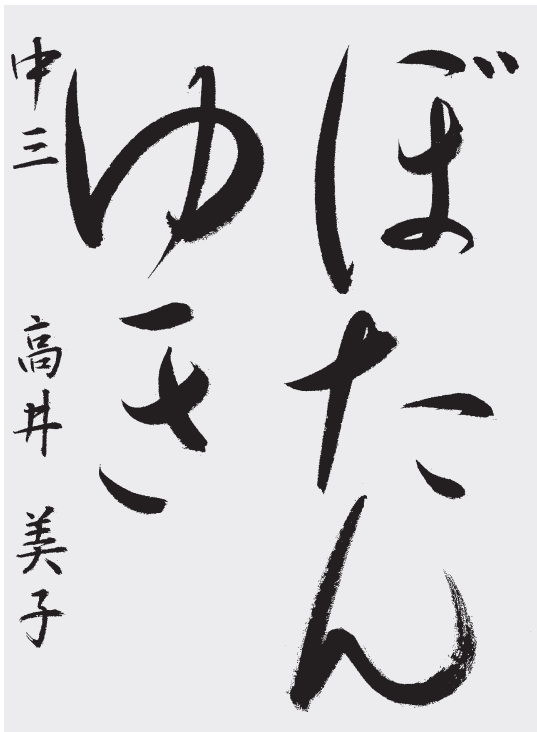 ぼたん
ゆき
中三 高井 美子